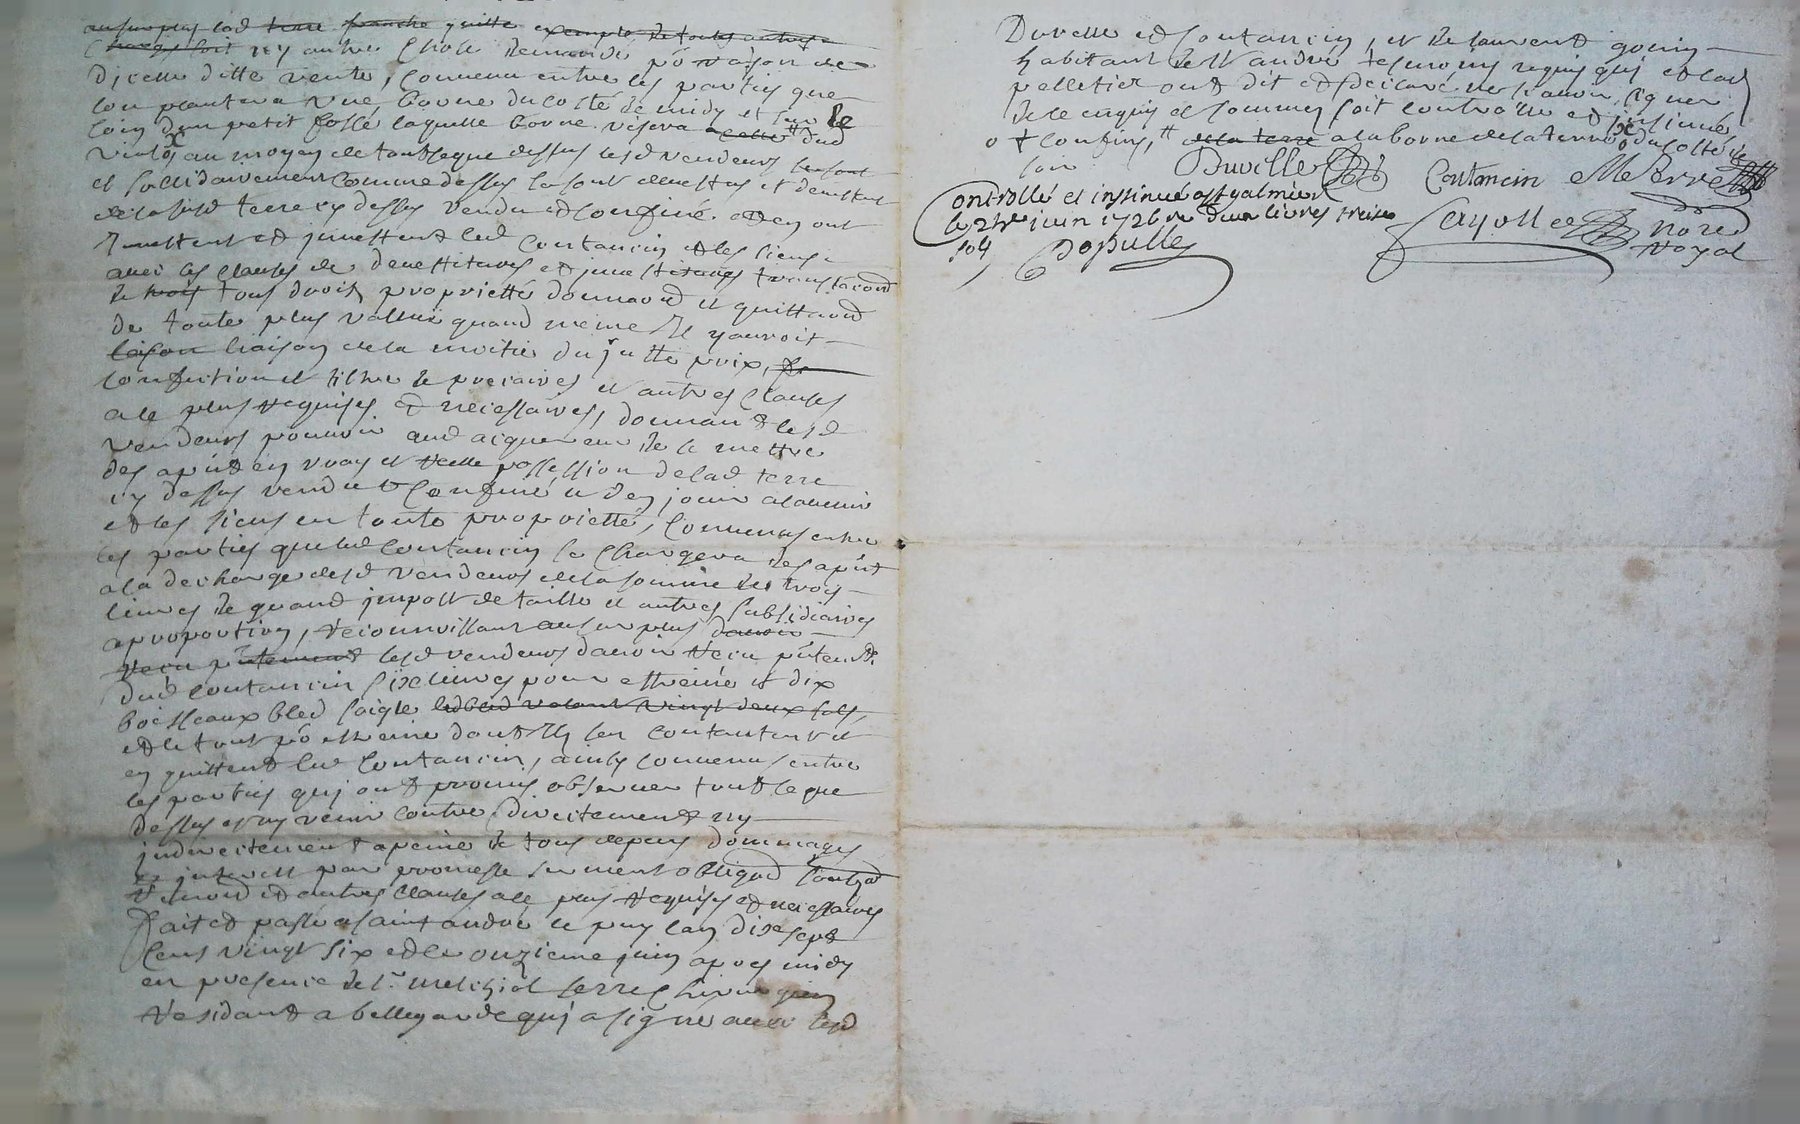 au surplus lad terre franche quitte exempte de toutes autres
charges soit ny autre chose demandé po raison de
dicelle ditte vente, convenu entre les parties que
lon plantera une borne du costé de midy et sur le
loin dun petit fossé laquelle borne visera a celle dud
vent au moyen de tout ce que dessus lesd vendeurs se sont
et sollidairement comme dessus se sont demettus et devettus
de la susd terre cy dessus vendue et confiné et en ont
et investent led Coutancin et les siens
avec les clauses de devettitures et investitures
de trois tous droits proprietté donnaond et quittaond
de toute plus vallue quand meme Il y auroit
lesion liaison de la moitié du juste prix,
constitution et tiltre de precaires et autres clauses
a ce plus requises et necessaires, donnant lesd
vendeurs pouvoir aud acquereur de se mettre
des apnt en vray et reelle possession de lad terre
cy dessus vendue et confiné et den jouir a ladvenir
et les siens en toute proprietté, convenus entre
les parties que led Coutancin se chargera des apnt
a la decharge desd vendeurs de la somme de trois
livres de grand impost de taille et autres subsidiaires
a proportion, reconnoissant au surplus davoir
receu pntement lesd vendeurs davoir receu pntemt
dud Coutancin six livres pour estreine et dix
boisseaux bled saigle led bled valant vingt deux sols,
et le tout po estreine dont Ils sen contantent et
en quittent led Coutancin, ainsy convenus entre
les parties qui ont promis observer tout ce que
dessus et ny venir contre directement ny
indirectement a peine de tous depens dommages
et interest par promesse serment obligaod
et autres clauses a ce plus requises et necessaires
fait et passé a saint andré le puy lan dix sept
cens vingt six et le onzieme juin apres midy
en presence de sr. Melchiol serre chirurgien
residant a bellegarde qui a signé avec lesd
Duvelle et Coutancin, et de laurent gonin
habitant de St andré tesmoins requis qui et lad
pelletier ont dit et declaré ne sçavoir signer
de ce enquis et sommes soit controllé et insinué
confins, de la terre a la borne de la terre du costé de
soir
Duville Coutancin M Serre
Controllé et insinué a st galmier
le 24e juin 1726 re deux livres treise
s 04 Dopulle
Cayolle nore
royal